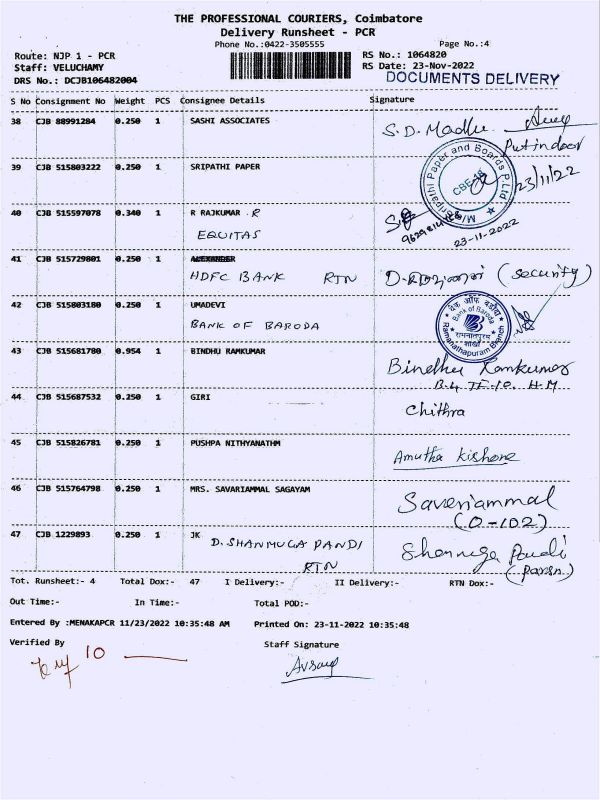 THE PROFESSIONAL COURIERS, Coimbatore
Delivery Runsheet - PCR
Phone No.:0422-3505555 Page No.:4
Route: NJP 1 - PCR RS No.: 1064820
Staff: VELUCHAMY RS Date: 23-Nov-2022
DRS No.: DCJB106482004 DOCUMENTS DELIVERY
S No Consignment No Weight PCS Consignee Details Signature
38 CJB 88991284 0.250 1 SASHI ASSOCIATES S.D. Madhu
Put indoor
39 CJB 515803222 0.250 1 SRIPATHI PAPER 23/11/22
M/s Sripathi Paper and Boards P. Ltd
CBE-18
40 CJB 515597078 0.340 1 R RAJKUMAR R
EQUITAS 23-11-2022
41 CJB 515729801 0.250 1 ALEXANDER
HDFC BANK RTN (security)
42 CJB 515803180 0.250 1 UMADEVI
BANK OF BARODA
बैंक ऑफ़ बड़ौदा
Bank of Baroda
रामनाथपुरम शाखा
Ramanathapuram Branch
43 CJB 515681780 0.954 1 BINDHU RAMKUMAR Bindhu Ramkumar
44 CJB 515687532 0.250 1 GIRI Chithra
45 CJB 515826781 0.250 1 PUSHPA NITHYANATHM Amutha Kishore
46 CJB 515764798 0.250 1 MRS. SAVARIAMMAL SAGAYAM Saveriammal
(O-102)
47 CJB 1229893 0.250 1 JK
D. SHANMUGA PANDI
RTN
Tot. Runsheet:- 4 Total Dox:- 47 I Delivery:- II Delivery:- RTN Dox:-
Out Time:- In Time:- Total POD:-
Entered By :MENAKAPCR 11/23/2022 10:35:48 AM Printed On: 23-11-2022 10:35:48
Verified By Staff Signature
10